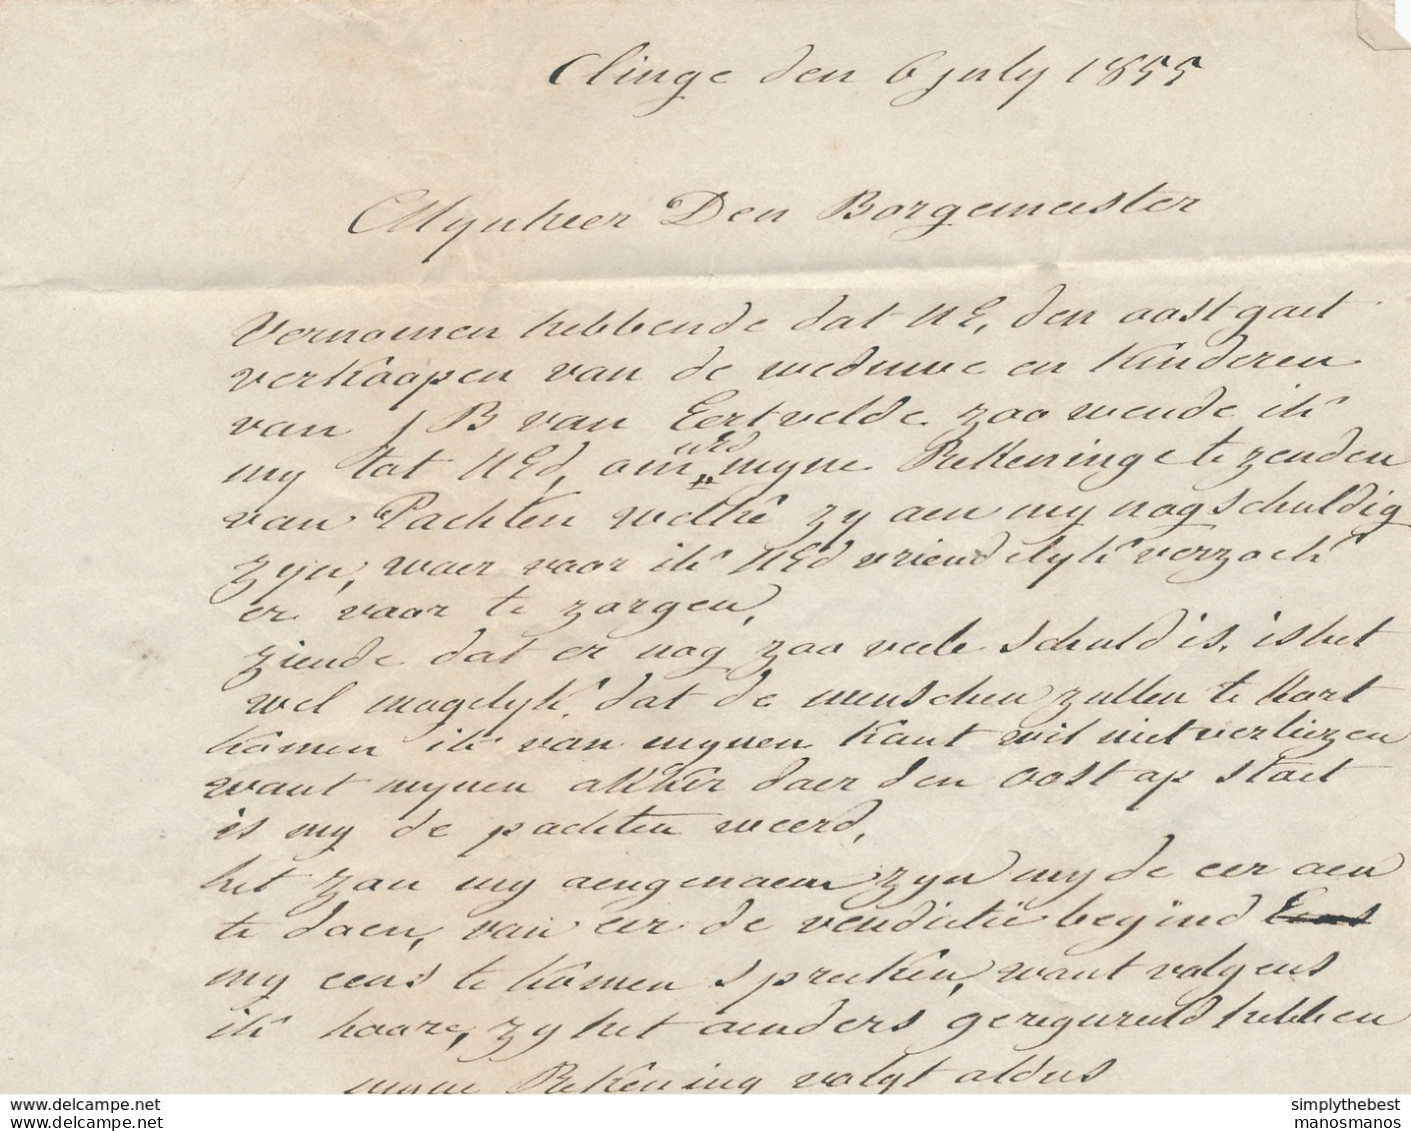 Clinge den 6 july 1855
Mynheer Den Borgemeester
Vernomen hebbende dat UE, den oost gaet
verkoopen van de weduwe en kinderen
van J B van Eertvelde zoo wende ik
my tot UEd, om UEd myne Rekeninge te zenden
van Pachten welke zy aen my nog schuldig
zyn, waer voor ik UEd vriendelyk verzoek
er voor te zorgen,
ziende dat er nog zoo veele schuld is, is het
wel mogelyk dat de menschen zullen te kort
komen ik van mynen kant wil niet verliezen
want mynen akker daer den oost op staet
is my de pachten weerd,
het zou my aengenaem zyn my de eer aen
te doen, van eer de venditie begind Eens
my eens te komen spreeken, want volgens
ik hoore, zy het anders geregureeld hebben
myne Rekening volgt aldus
www.delcampe.net
manosmanos
simplythebest
manosmanos